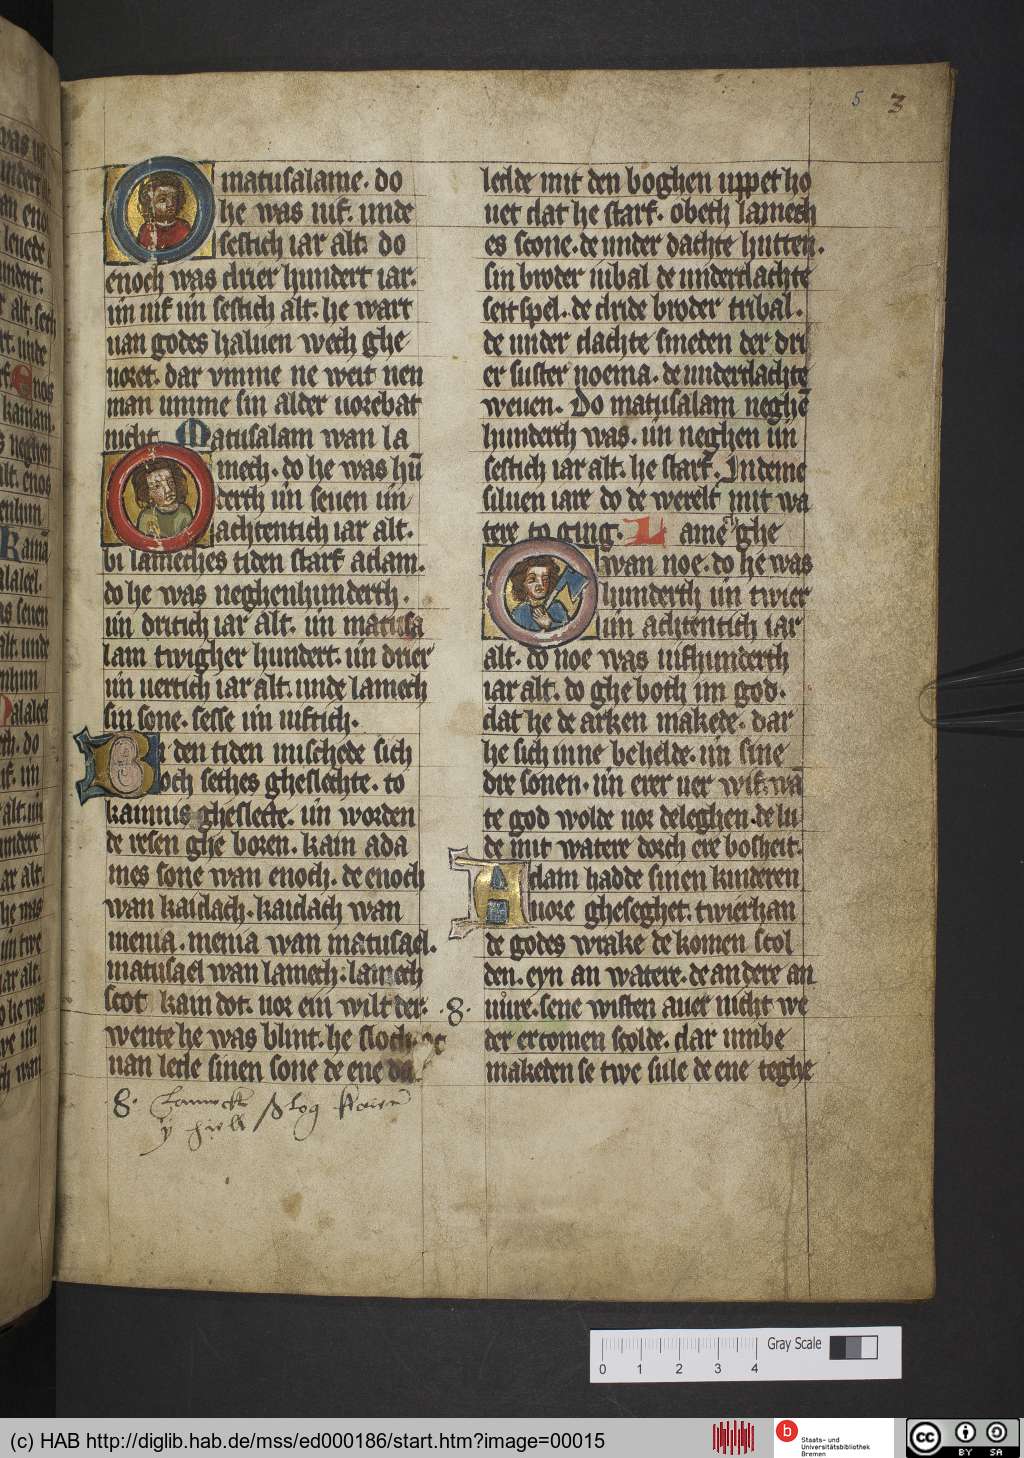 5 3
matusalame. do
he was uif. unde
sestich iar alt. do
enoch was drier hundert iar.
un uif un sestich alt. he wart
uan godes haluen wech ghe
uoret. dar vmme ne weit nen
man umme sin alder uorebat
nicht. Matusalam wan la
mech. do he was hū
derth un seuen un
achtentich iar alt.
bi lameches tiden starf adam.
do he was neghenhunderth.
un dritich iar alt. un matusa
lam twigher hundert. un drier
un uertich iar alt. unde lamech
sin sone. sesse un uiftich.
Bi den tiden mischede sich
och sethes gheslechte. to
kaimis gheslecte. un worden
de resen ghe boren. kain ada
mes sone wan enoch. de enoch
wan kaidach. kaidach wan
menia. menia wan matusael.
matusael wan lamech. lamech
scot kain dot. uor ein wilt der. .8.
wente he was blint. he sloch
uan lede sinen sone de ene
8. Lamech slog
ledde mit den boghen uppet ho
uet dat he starf. obeth lamech
es scone. de under dachte hutten.
sin broder iubal de underdachte
seitspel. de dride broder tribal.
de under dachte smeden der dri
er suster noema. de underdachte
weuen. Do matusalam neghē
hunderth was. un neghen un
sestich iar alt. he starf. Indeme
siluen iare do de werelt mit wa
tere to ging. Lamech ghe
wan noe. do he was
hunderth un twier
un achtentich iar
alt. do noe was uifhunderth
iar alt. do ghe both im god.
dat he de arken makede. dar
he sich inne behelde. un sine
dre sonen. un erer uer wif. wā
te god wolde uor deleghen. de lu
de mit watere dorch ere bosheit.
Adam hadde sinen kinderen
uore gheseghet. twierhan
de godes wrake de komen scol
den. eyn an watere. de andere an
uure. sene wisten auer nicht we
der ertomen scolde. dar umbe
makeden se twe sule de ene teghe
0 1 2 3 4
Gray Scale
(c) HAB http://diglib.hab.de/mss/ed000186/start.htm?image=00015
b
Staats- und
Universitätsbibliothek
Bremen
cc
BY SA